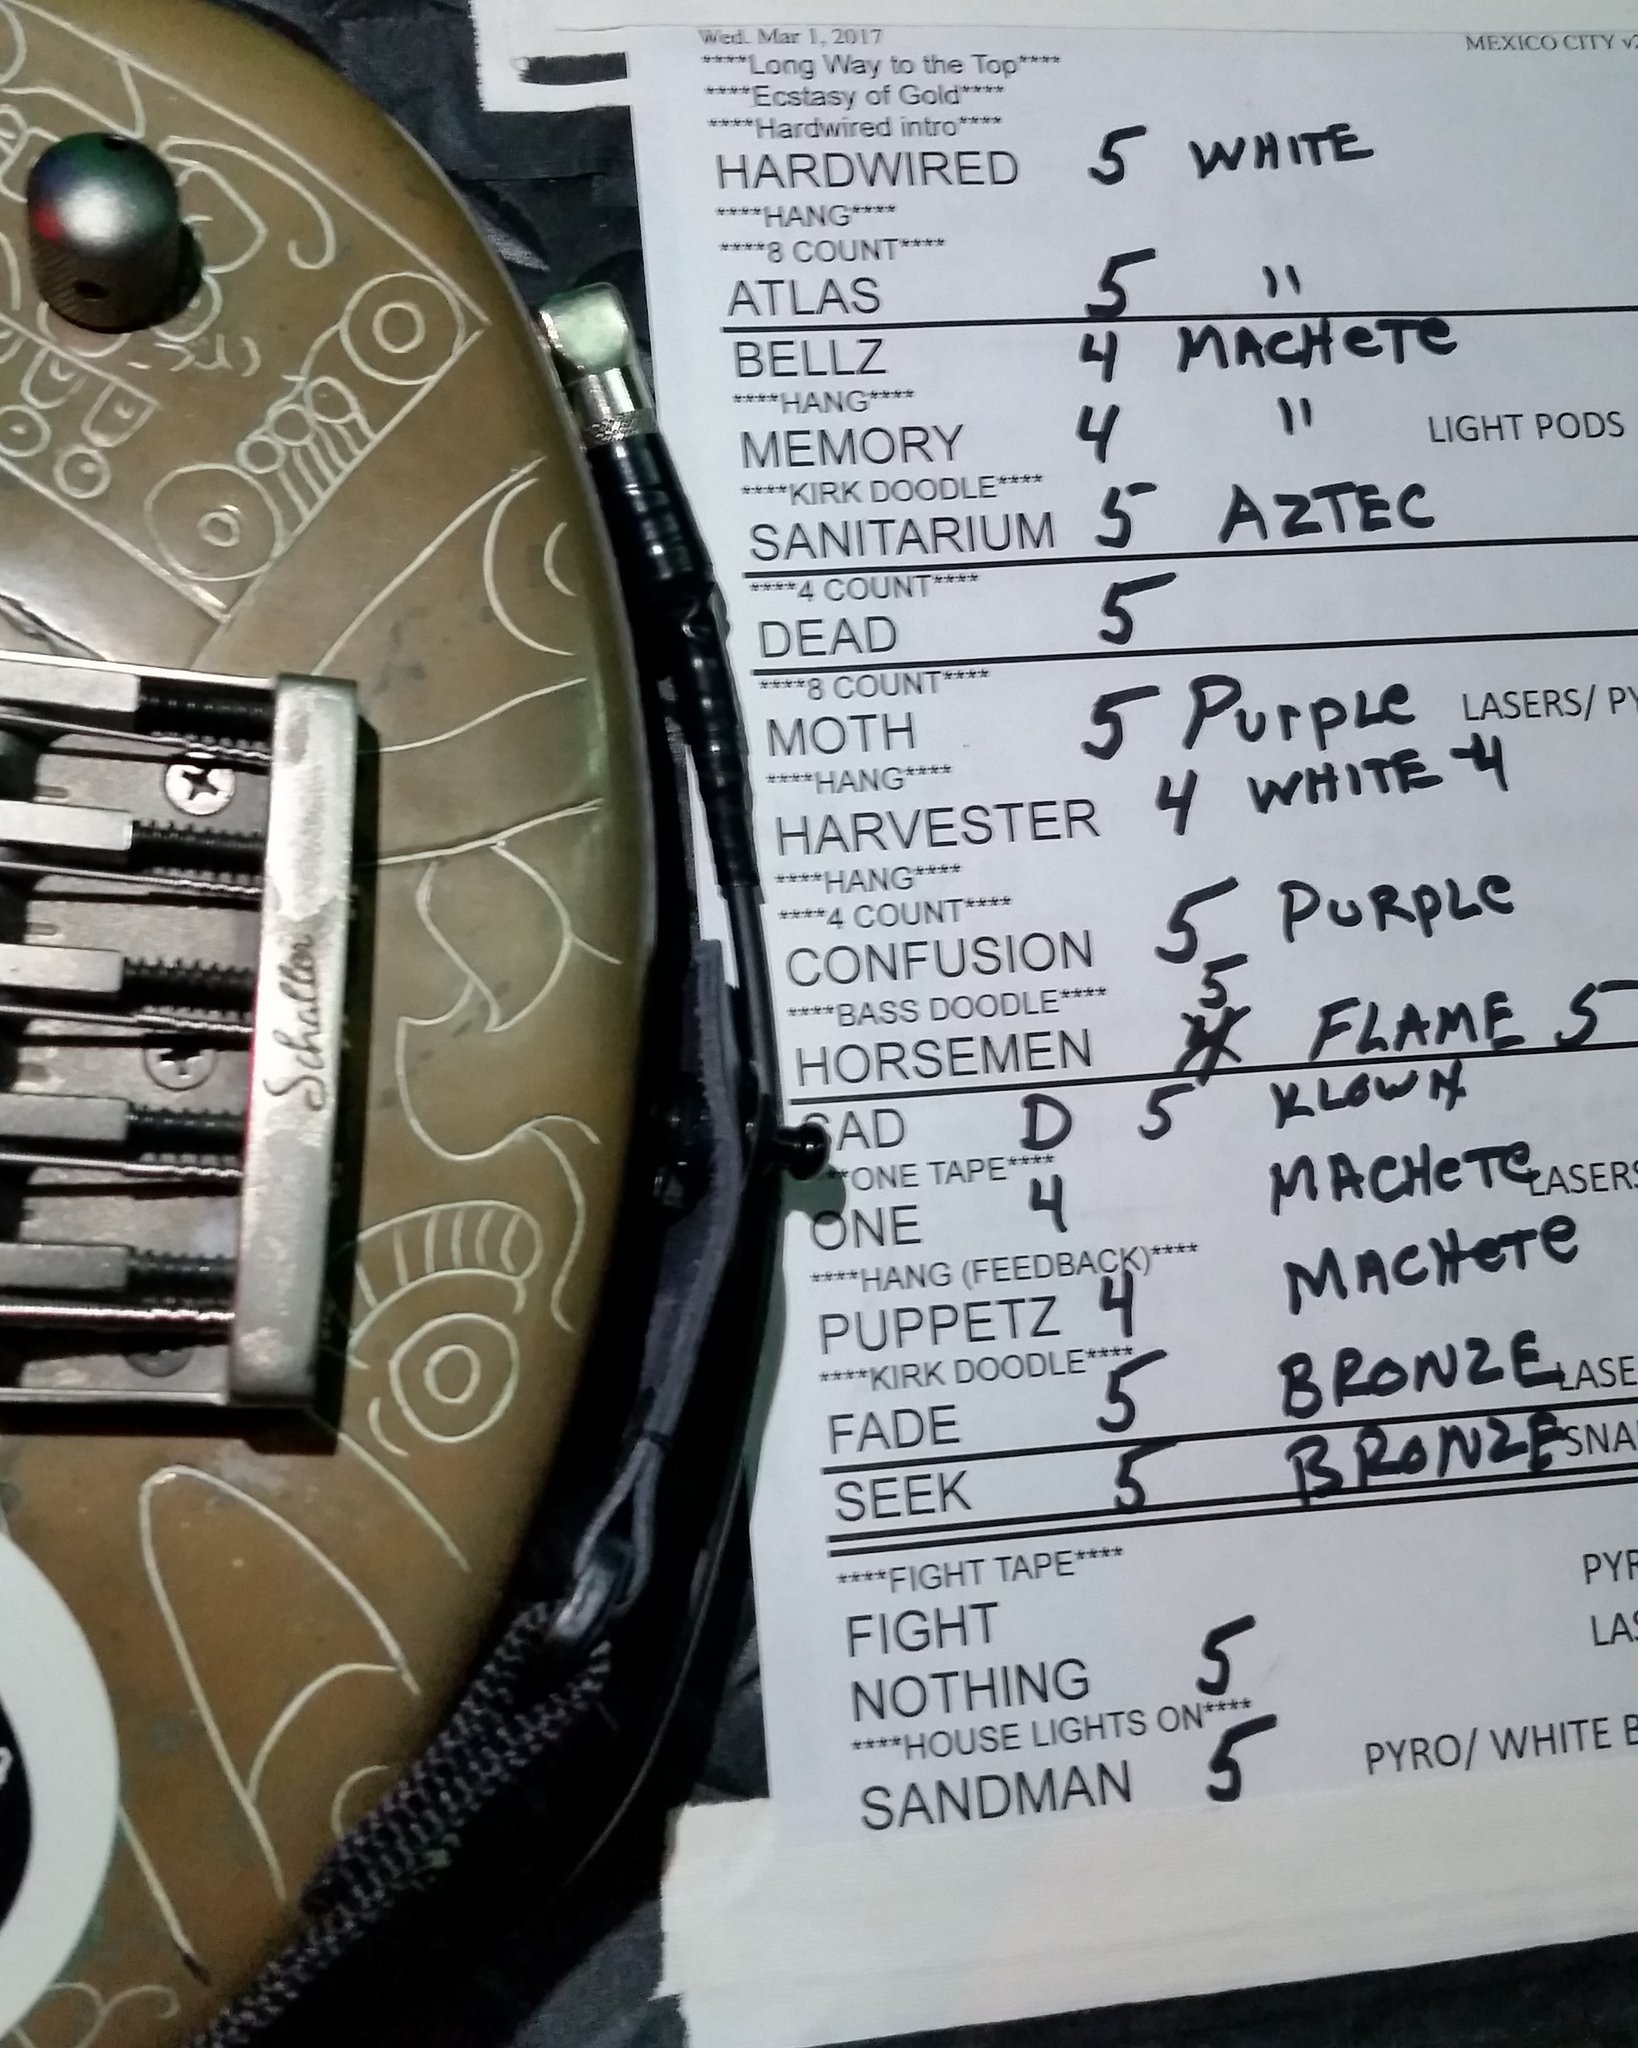 Wed. Mar 1, 2017 MEXICO CITY
****Long Way to the Top****
****Ecstasy of Gold****
****Hardwired intro****
HARDWIRED 5 WHITE
****HANG****
****8 COUNT****
ATLAS 5 "
BELLZ 4 MACHETE
****HANG****
MEMORY 4 " LIGHT PODS
****KIRK DOODLE****
SANITARIUM 5 AZTEC
****4 COUNT****
DEAD 5
****8 COUNT****
MOTH 5 PurpLe LASERS/
****HANG****
HARVESTER 4 WHITE-4
****HANG****
****4 COUNT****
CONFUSION 5 PURPLE
****BASS DOODLE**** 5
HORSEMEN FLAME 5
SAD D 5 KLOWN
**ONE TAPE****
ONE 4 MACHETE LASERS
****HANG (FEEDBACK)****
PUPPETZ 4 MACHETE
****KIRK DOODLE****
FADE 5 BRONZE
SEEK 5 BRONZE
****FIGHT TAPE****
FIGHT
NOTHING 5
****HOUSE LIGHTS ON****
SANDMAN 5 PYRO/ WHITE
Schaller